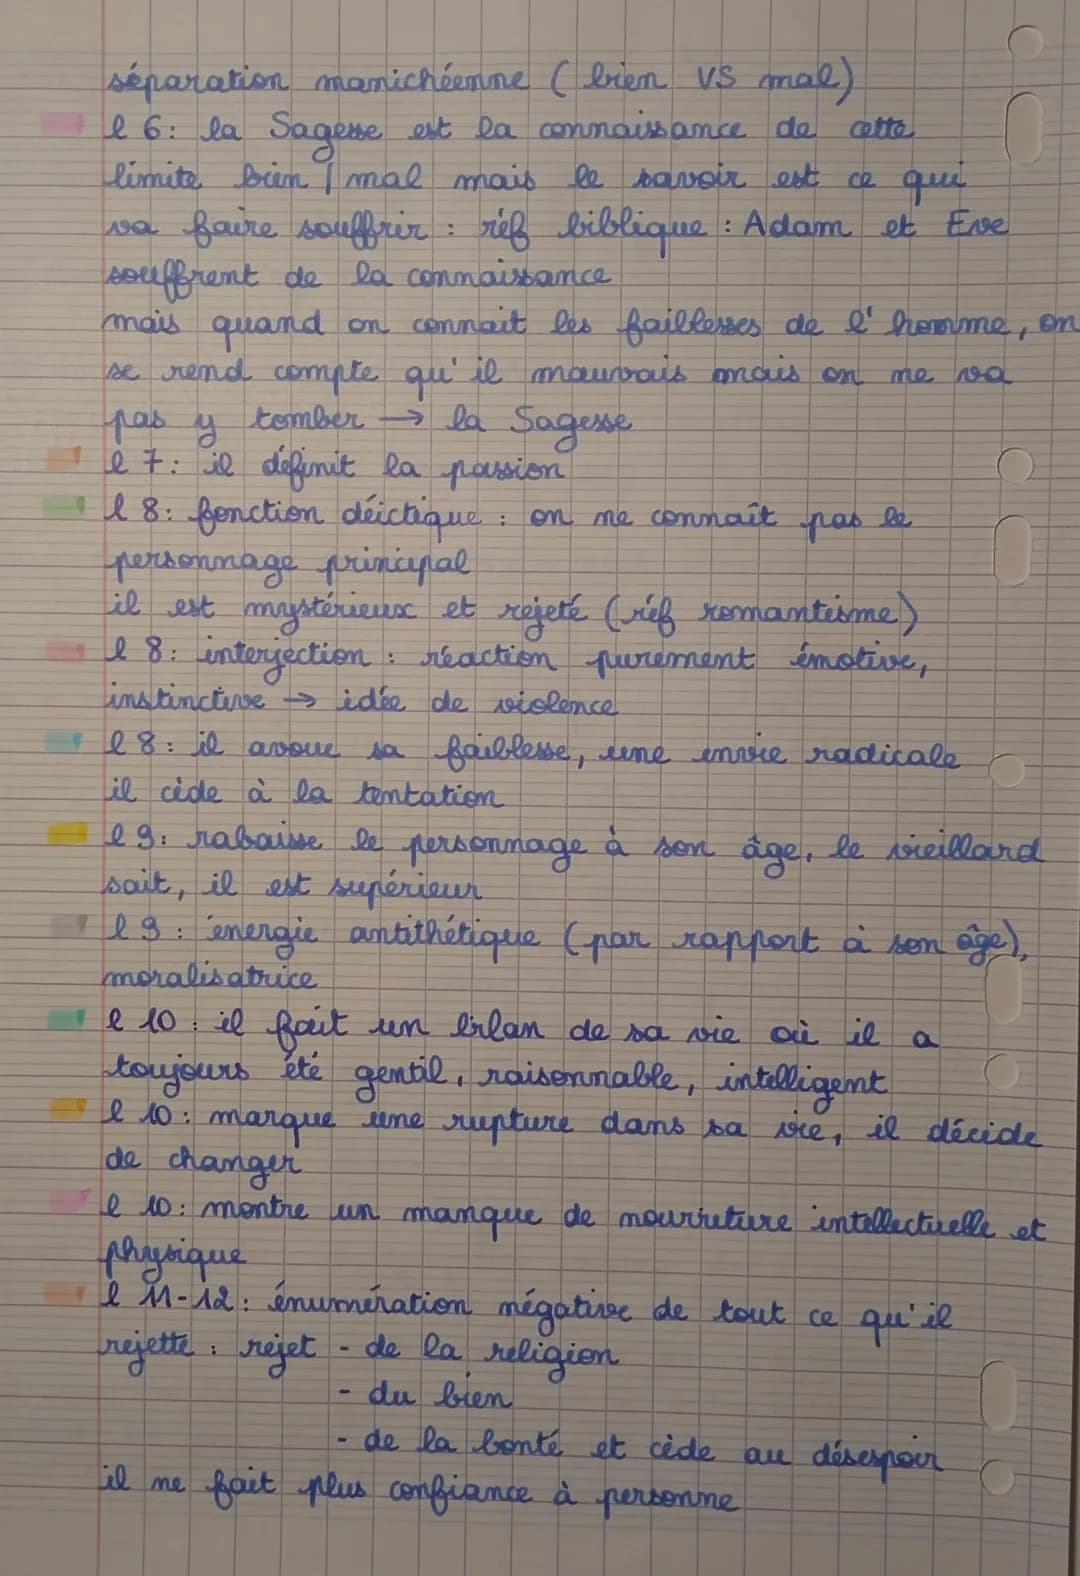 séparation manichéenne ( bien VS mal)
l 6: la Sagesse est la connaissance de cette
limite bien / mal mais le savoir est ce qui
va faire souffrir : réf biblique : Adam et Eve
souffrent de la connaissance
mais quand on connait les faiblesses de l'homme, on
se rend compte qu'il mauvais mais on ne va
pas y tomber → la Sagesse
l 7: il définit la passion
l 8: fonction déictique : on ne connaît pas le
personnage principal
il est mystérieux et rejeté (réf romantisme)
l 8: interjection : réaction purement émotive,
instinctive → idée de violence
l 8: il avoue sa faiblesse, une envie radicale
il cède à la tentation
l 9: rabaisse le personnage à son âge, le vieillard
sait, il est supérieur
l 9: énergie antithétique (par rapport à son âge),
moralisatrice
l 10: il fait un bilan de sa vie où il a
toujours été gentil, raisonnable, intelligent
l 10: marque une rupture dans sa vie, il décide
de changer
l 10: montre un manque de nourriture intellectuelle et
physique
l 11-12: énumération négative de tout ce qu'il
rejette : rejet - de la religion
- du bien
- de la bonté et cède au désespoir
il ne fait plus confiance à personne